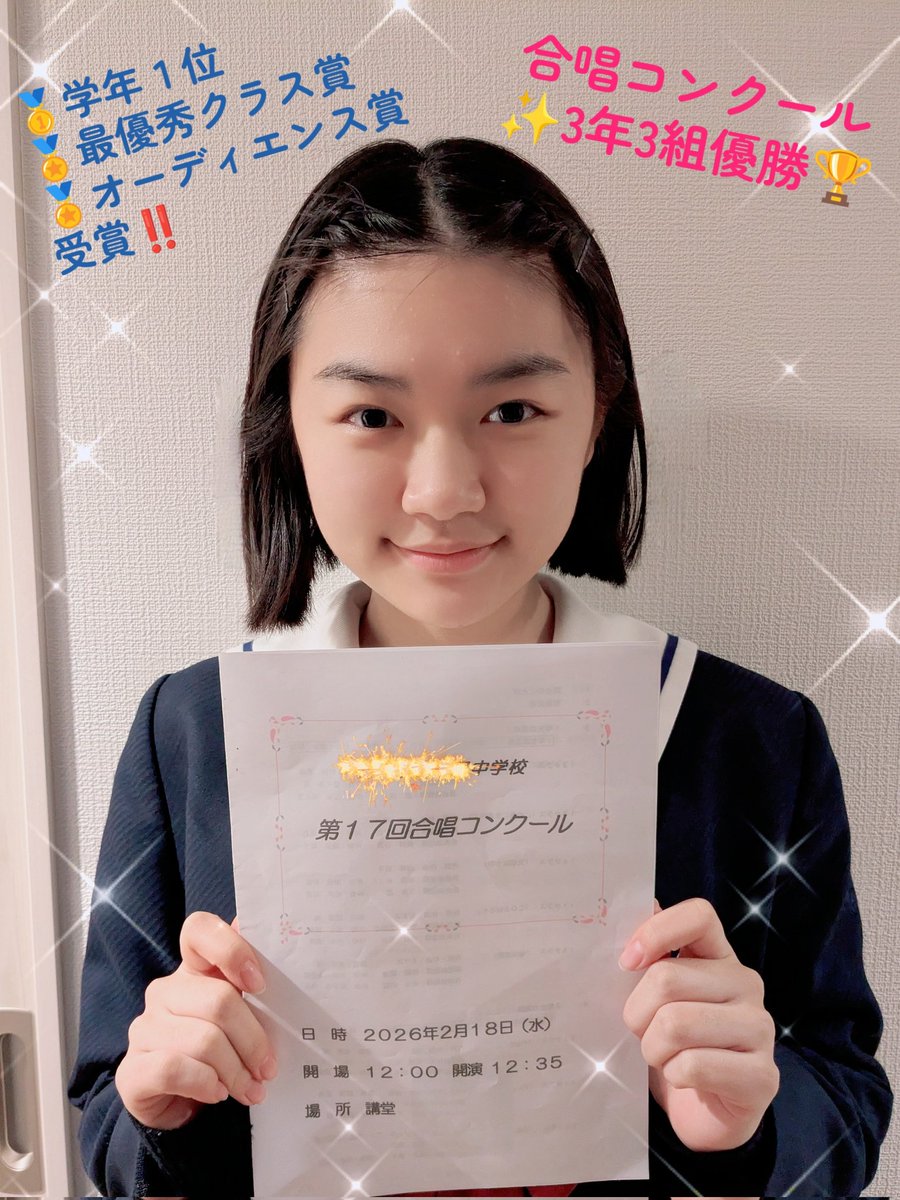 🥇学年１位
🏅最優秀クラス賞
🏅オーディエンス賞
受賞‼️
合唱コンクール
✨3年3組優勝🏆
中学校
第１７回合唱コンクール
日　時　２０２６年２月１８日（水）
開　場　１２：００　開演１２：３５
場　所　講堂